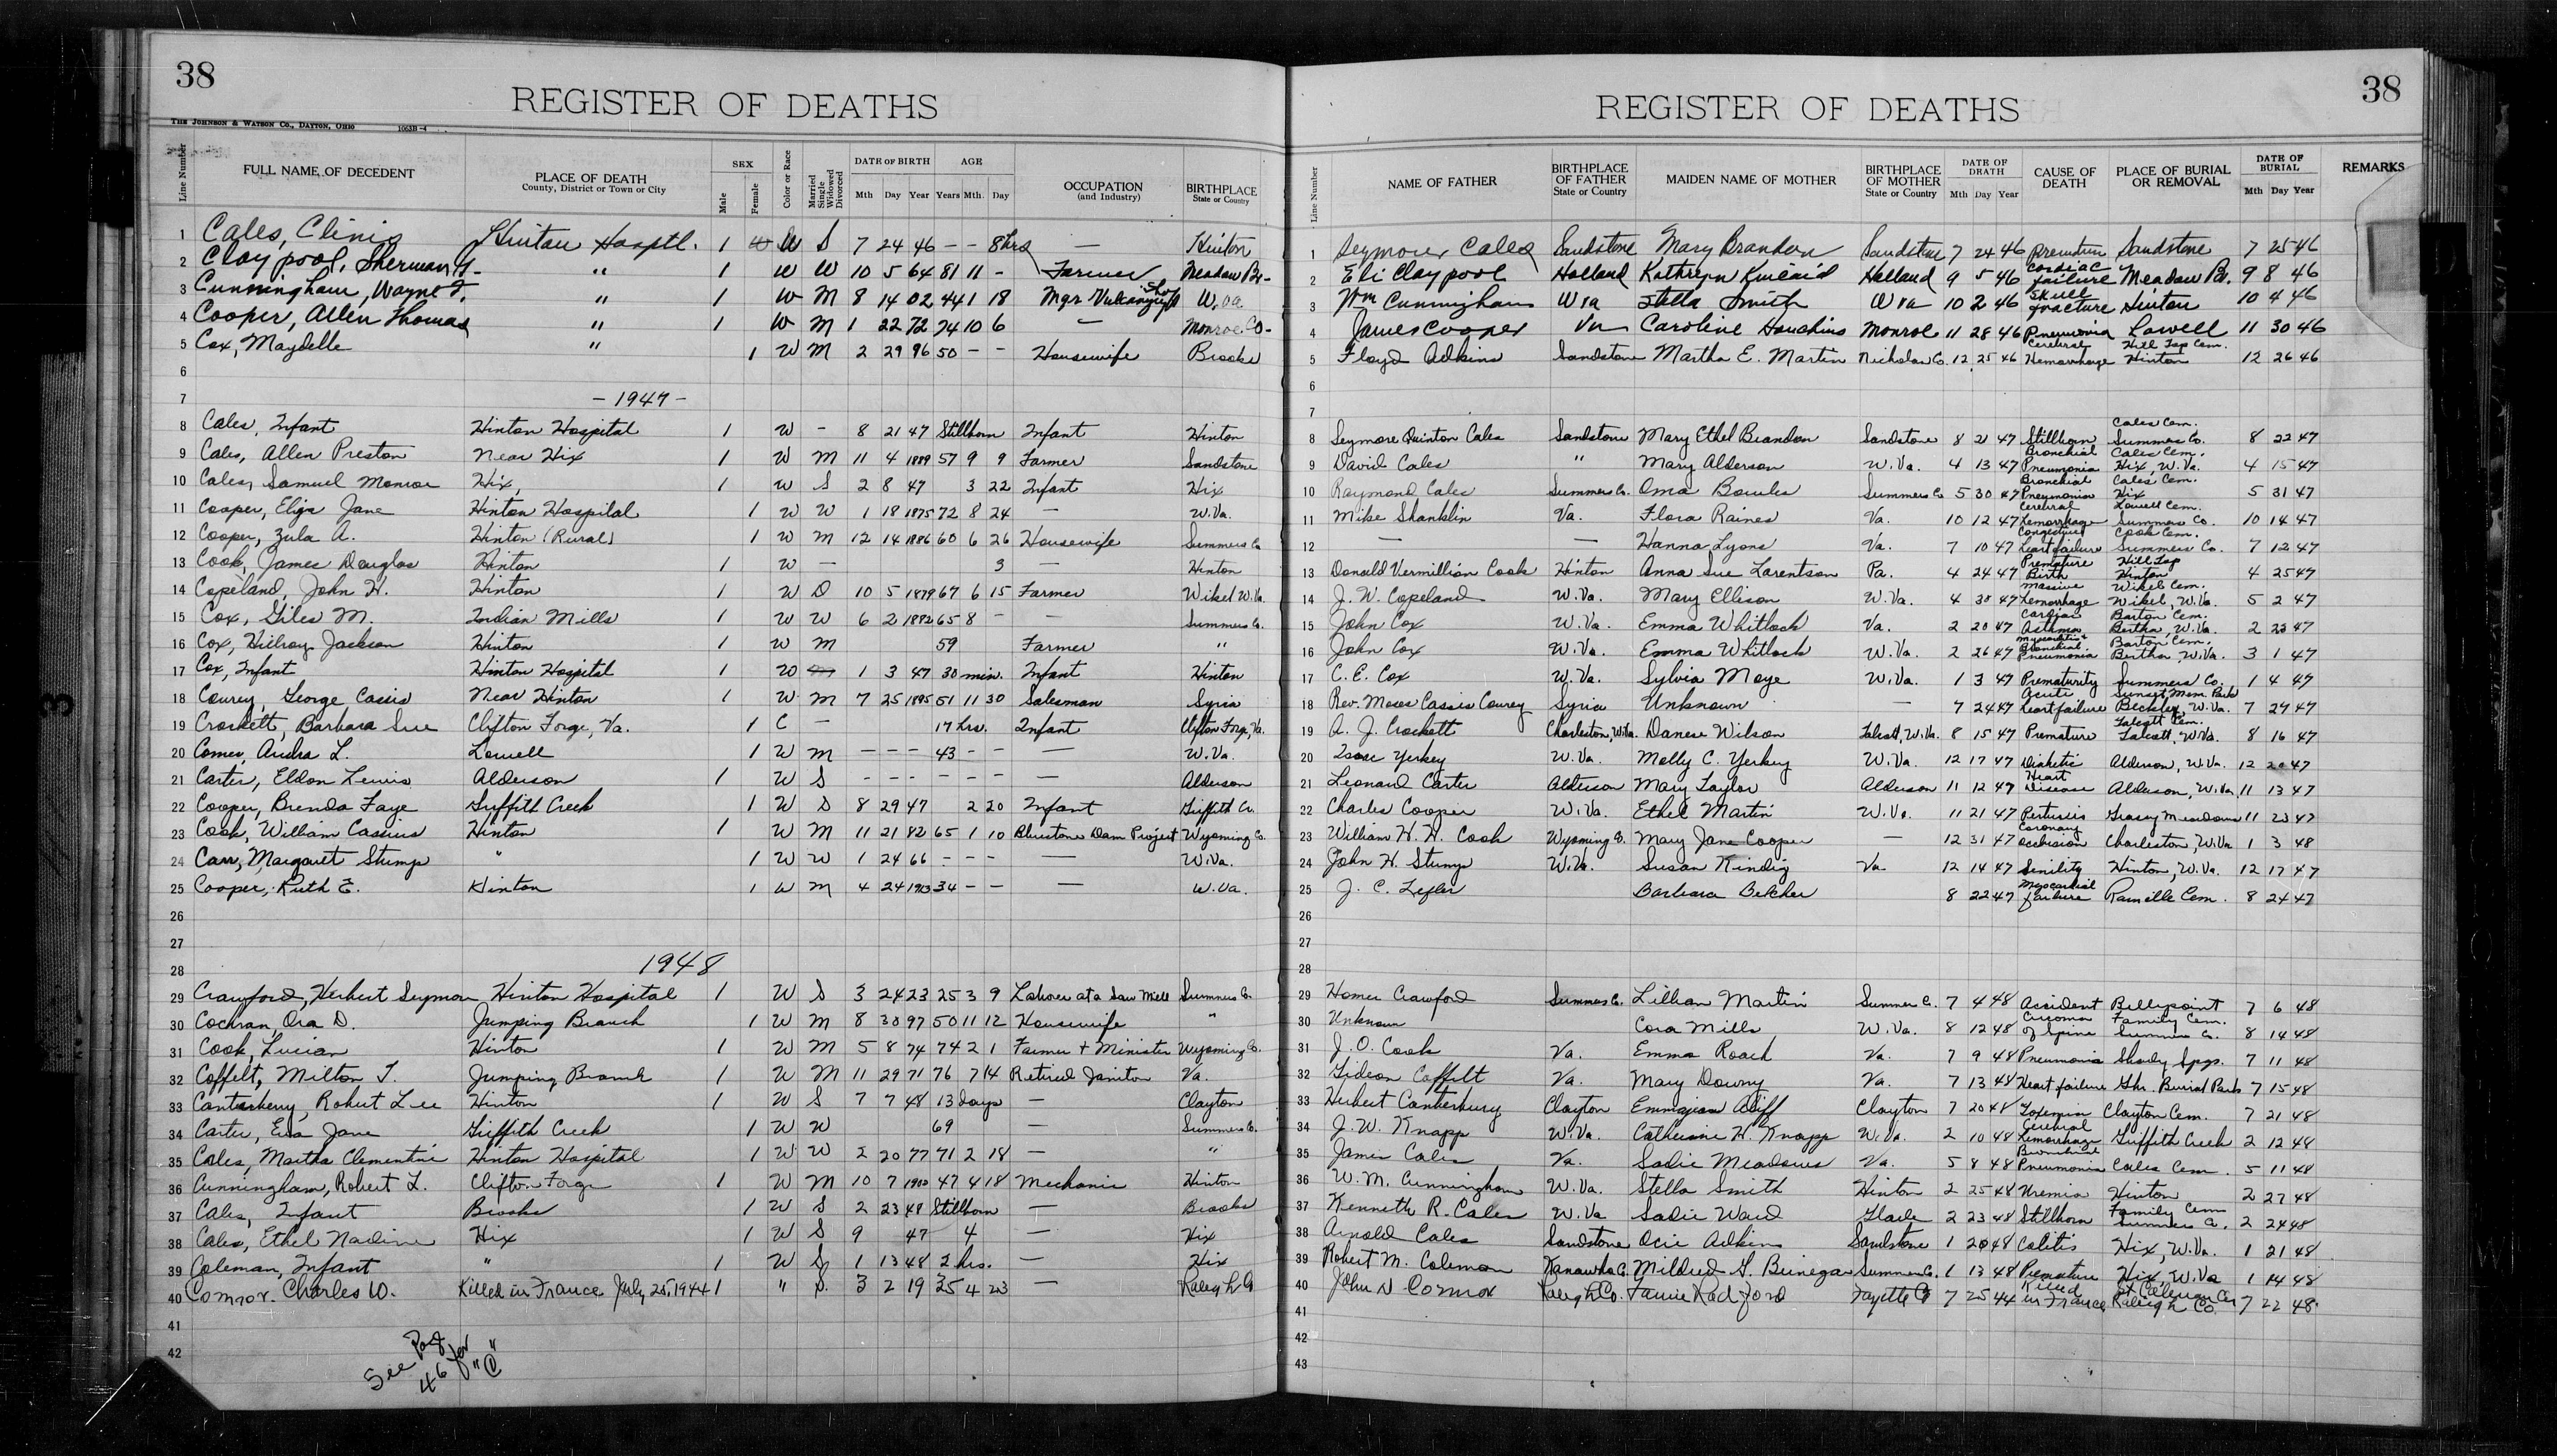 38
REGISTER OF DEATHS
THE JOHNSON & WATSON CO., DAYTON, OHIO 1063B-4
Line Number | FULL NAME OF DECEDENT | PLACE OF DEATH County, District or Town or City | SEX Male Female | Color or Race | Married Single Widowed Divorced | DATE OF BIRTH Mth Day Year | AGE Years Mth. Day | OCCUPATION (and Industry) | BIRTHPLACE State or Country
1 Cales, Clinis Hinton Hosptl. 1 W S 7 24 46 – – 8 hrs — Hinton
2 Claypool, Sherman " 1 W W 10 5 64 81 11 - Farmer Meadow Br-
3 Cunningham, Wayne " 1 W M 8 14 02 44 1 18 Mgr Shop W.va
4 Cooper, Allen Thomas " 1 W M 1 22 72 74 10 6 — Monroe Co-
5 Cox, Maydelle " 1 W M 2 29 96 50 – – Housewife Brooks
6
7 - 1947 -
8 Cales, Infant Hinton Hospital 1 W - 8 21 47 Stillborn Infant Hinton
9 Cales, Allen Preston Near Hix 1 W M 11 4 1889 57 9 9 Farmer Sandstone
10 Cales, Samuel Monroe Hix, 1 W S 2 8 47 3 22 Infant Hix
11 Cooper, Eliza Jane Hinton Hospital 1 W W 1 18 1875 72 8 24 — W.Va.
12 Cooper, Zula A. Hinton (Rural) 1 W M 12 14 1886 60 6 26 Housewife Summers Co
13 Cook, James Douglas Hinton 1 W — 3 — Hinton
14 Copeland, John H. Hinton 1 W D 10 5 1879 67 6 15 Farmer Wikel W.Va.
15 Cox, Giles M. Indian Mills 1 W W 6 2 1882 65 8 – — Summers Co.
16 Cox, Hilroy Jackson Hinton 1 W M 59 Farmer "
17 Cox, Infant Hinton Hospital 1 W 1 3 47 30 min. Infant Hinton
18 Courey, George Cassis Near Hinton 1 W M 7 25 1895 51 11 30 Salesman Syria
19 Crockett, Barbara Sue Clifton Forge, Va. 1 C – 17 hrs. Infant Clifton Forge, Va.
20 Comer, Audra L. Lowell 1 W M – – – 43 – – — W.Va.
21 Carter, Eldon Lewis Alderson 1 W S – – – – – – — Alderson
22 Cooper, Brenda Faye Griffith Creek 1 W S 8 29 47 2 20 Infant Griffith Cr.
23 Cook, William Cassius Hinton 1 W M 11 21 82 65 1 10 Bluestone Dam Project Wyoming Co.
24 Carr, Margaret Stump " 1 W W 1 24 66 – – – — W.Va.
25 Cooper, Ruth E. Hinton 1 W M 4 24 1913 34 – – — W.Va.
26
27
28 1948
29 Crawford, Herbert Seymour Hinton Hospital 1 W S 3 24 23 25 3 9 Laborer at a Saw Mill Summers Co.
30 Cochran, Ora D. Jumping Branch 1 W M 8 30 97 50 11 12 Housewife "
31 Cook, Lucian Hinton 1 W M 5 8 74 74 2 1 Farmer + Minister Wyoming Co.
32 Coffelt, Milton T. Jumping Branch 1 W M 11 29 71 76 7 14 Retired Janitor Va.
33 Canterbery, Robert Lee Hinton 1 W S 7 7 48 13 days — Clayton
34 Carter, Eva Jane Griffith Creek 1 W W 69 — Summers Co.
35 Cales, Martha Clementine Hinton Hospital 1 W W 2 20 77 71 2 18 — "
36 Cunningham, Robert L. Clifton Forge 1 W M 10 7 1900 47 4 18 Mechanic Hinton
37 Cales, Infant Brooks 1 W S 2 23 48 Stillborn — Brooks
38 Cales, Ethel Nadine Hix 1 W S 9 47 4 — Hix
39 Coleman, Infant " 1 W S 1 13 48 2 hrs. — Hix
40 Connor, Charles W. Killed in France July 25, 1944 1 " S. 3 2 19 35 4 23 — Raleigh Co
41
42
See Pag 46 for "C"
38
REGISTER OF DEATHS
Line Number | NAME OF FATHER | BIRTHPLACE OF FATHER State or Country | MAIDEN NAME OF MOTHER | BIRTHPLACE OF MOTHER State or Country | DATE OF DEATH Mth Day Year | CAUSE OF DEATH | PLACE OF BURIAL OR REMOVAL | DATE OF BURIAL Mth Day Year | REMARKS
1 Seymour Cales Sandstone Mary Brandon Sandstone 7 24 46 Sandstone 7 25 46
2 Eli Claypool Holland Kathryn Kincaid Holland 9 5 46 Cardiac failure Meadow Br. 9 8 46
3 Wm Cunningham W va Stella Smith W va 10 2 46 Skull fracture Hinton 10 4 46
4 James Cooper Va Caroline Houchins Monroe 11 28 46 Pneumonia Lowell 11 30 46
5 Floyd Adkins Sandstone Martha E. Martin Nicholas Co. 12 25 46 Cerebral Hemorrhage Hill Top Cem. Hinton 12 26 46
6
7
8 Seymore Quinton Cales Sandstone Mary Ethel Brandon Sandstone 8 21 47 Stillborn Cales Cem. Summers Co. 8 22 47
9 David Cales " Mary Alderson W.Va. 4 13 47 Bronchial Pneumonia Cales Cem. Hix, W.Va. 4 15 47
10 Raymond Cales Summers Co. Oma Bowles Summers Co 5 30 47 Bronchial Pneumonia Cales Cem. Hix 5 31 47
11 Mike Shanklin Va. Flora Raines Va. 10 12 47 Cerebral Hemorrhage Lowell Cem. Summers Co. 10 14 47
12 — — Hanna Lyons Va. 7 10 47 Congestive heart failure Cook Cem. Summers Co. 7 12 47
13 Donald Vermillion Cook Hinton Anna Sue Larentson Pa. 4 24 47 Premature Birth Hill Top Hinton 4 25 47
14 J. W. Copeland W.Va. Mary Ellison W.Va. 4 30 47 Massive Hemorrhage Wikel Cem. Wikel, W.Va. 5 2 47
15 John Cox W.Va. Emma Whitlock Va. 2 20 47 Cardiac Asthma Barton Cem. Bertha, W.Va. 2 23 47
16 John Cox W.Va. Emma Whitlock W.Va. 2 26 47 Bronchial Pneumonia Barton Cem. Bertha, W.Va. 3 1 47
17 C. E. Cox W.Va. Sylvia Moye W.Va. 1 3 47 Prematurity Summers Co. 1 4 47
18 Rev. Moses Cassis Courey Syria Unknown — 7 24 47 Acute heart failure Sunset Mem. Park Beckley, W.Va. 7 27 47
19 A. J. Crockett Charleston, W.Va. Danese Wilson Talcott, W.Va. 8 15 47 Premature Talcott Cem. Talcott, W.Va. 8 16 47
20 Isaac Yerkey W.Va. Molly C. Yerkey W.Va. 12 17 47 Diabetic Alderson, W.Va. 12 20 47
21 Leonard Carter Alderson Mary Taylor Alderson 11 12 47 Heart Disease Alderson, W.Va. 11 13 47
22 Charles Cooper W.Va. Ethel Martin W.Va. 11 21 47 Pertussis Grassy Meadows 11 23 47
23 William H. H. Cook Wyoming Co. Mary Jane Cooper — 12 31 47 Coronary occlusion Charleston, W.Va 1 3 48
24 John H. Stump W.Va. Susan Kindig Va 12 14 47 Senility Hinton, W.Va. 12 17 47
25 J. C. Lefler Barbara Belcher 8 22 47 Myocardial failure Rainelle Cem. 8 24 47
26
27
28
29 Homer Crawford Summers Co. Lillian Martin Summer C. 7 4 48 Accident Bellepoint 7 6 48
30 Unknown Cora Mills W.Va. 8 12 48 of Spine Family Cem. Summers Co. 8 14 48
31 J. O. Cook Va. Emma Roach Va. 7 9 48 Pneumonia Shady Spgs. 7 11 48
32 Gideon Coffelt Va. Mary Downy Va. 7 13 48 Heart failure Burial Park 7 15 48
33 Herbert Canterbury Clayton Emmajean Clayton 7 20 48 Toxemia Clayton Cem. 7 21 48
34 J. W. Knapp W.Va. Catherine H. Knapp W.Va. 2 10 48 Cerebral Hemorrhage Griffith Creek 2 12 48
35 James Cales Va. Sadie Meadows Va. 5 8 48 Bronchial Pneumonia Cales Cem. 5 11 48
36 W. M. Cunningham W.Va. Stella Smith Hinton 2 25 48 Uremia Hinton 2 27 48
37 Kenneth R. Cales W.Va Sadie Ward 2 23 48 Stillborn Family Cem Summers Co. 2 24 48
38 Arnold Cales Sandstone Ocie Adkins Sandstone 1 20 48 Colitis Hix, W.Va. 1 21 48
39 Robert M. Coleman Kanawha C. Mildred G. Brinegar Summer Co. 1 13 48 Premature Hix, W.Va 1 14 48
40 John N Connor Raleigh Co. Fannie Radford Fayette Co 7 25 44 Killed in France Raleigh Co. 7 22 48
41
42
43